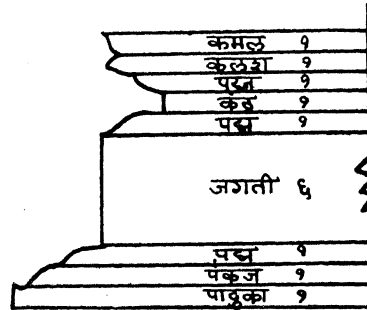 कमल १
कलश १
पट्टन १
कंठ १
पद्म १
जगती ६
पद्म १
पंकज १
पादुका १